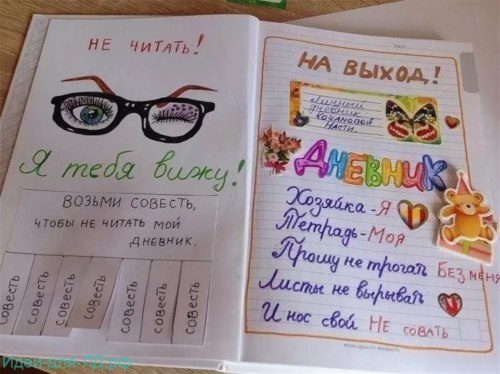 НЕ ЧИТАТЬ!
Я тебя вижу!
ВОЗЬМИ СОВЕСТЬ,
ЧТОБЫ НЕ ЧИТАТЬ МОЙ
ДНЕВНИК.
СОВЕСТЬ
СОВЕСТЬ
СОВЕСТЬ
СОВЕСТЬ
СОВЕСТЬ
СОВЕСТЬ
СОВЕСТЬ
НА ВЫХОД!
Личный
дневник
НАСТИ.
ДНЕВНИК
Хозяйка-Я
Тетрадь-Моя
Прошу не трогать БЕЗ МЕНЯ
Листы не вырывать
И нос свой НЕ СОВАТЬ
Идеи-для-ЛД.рф